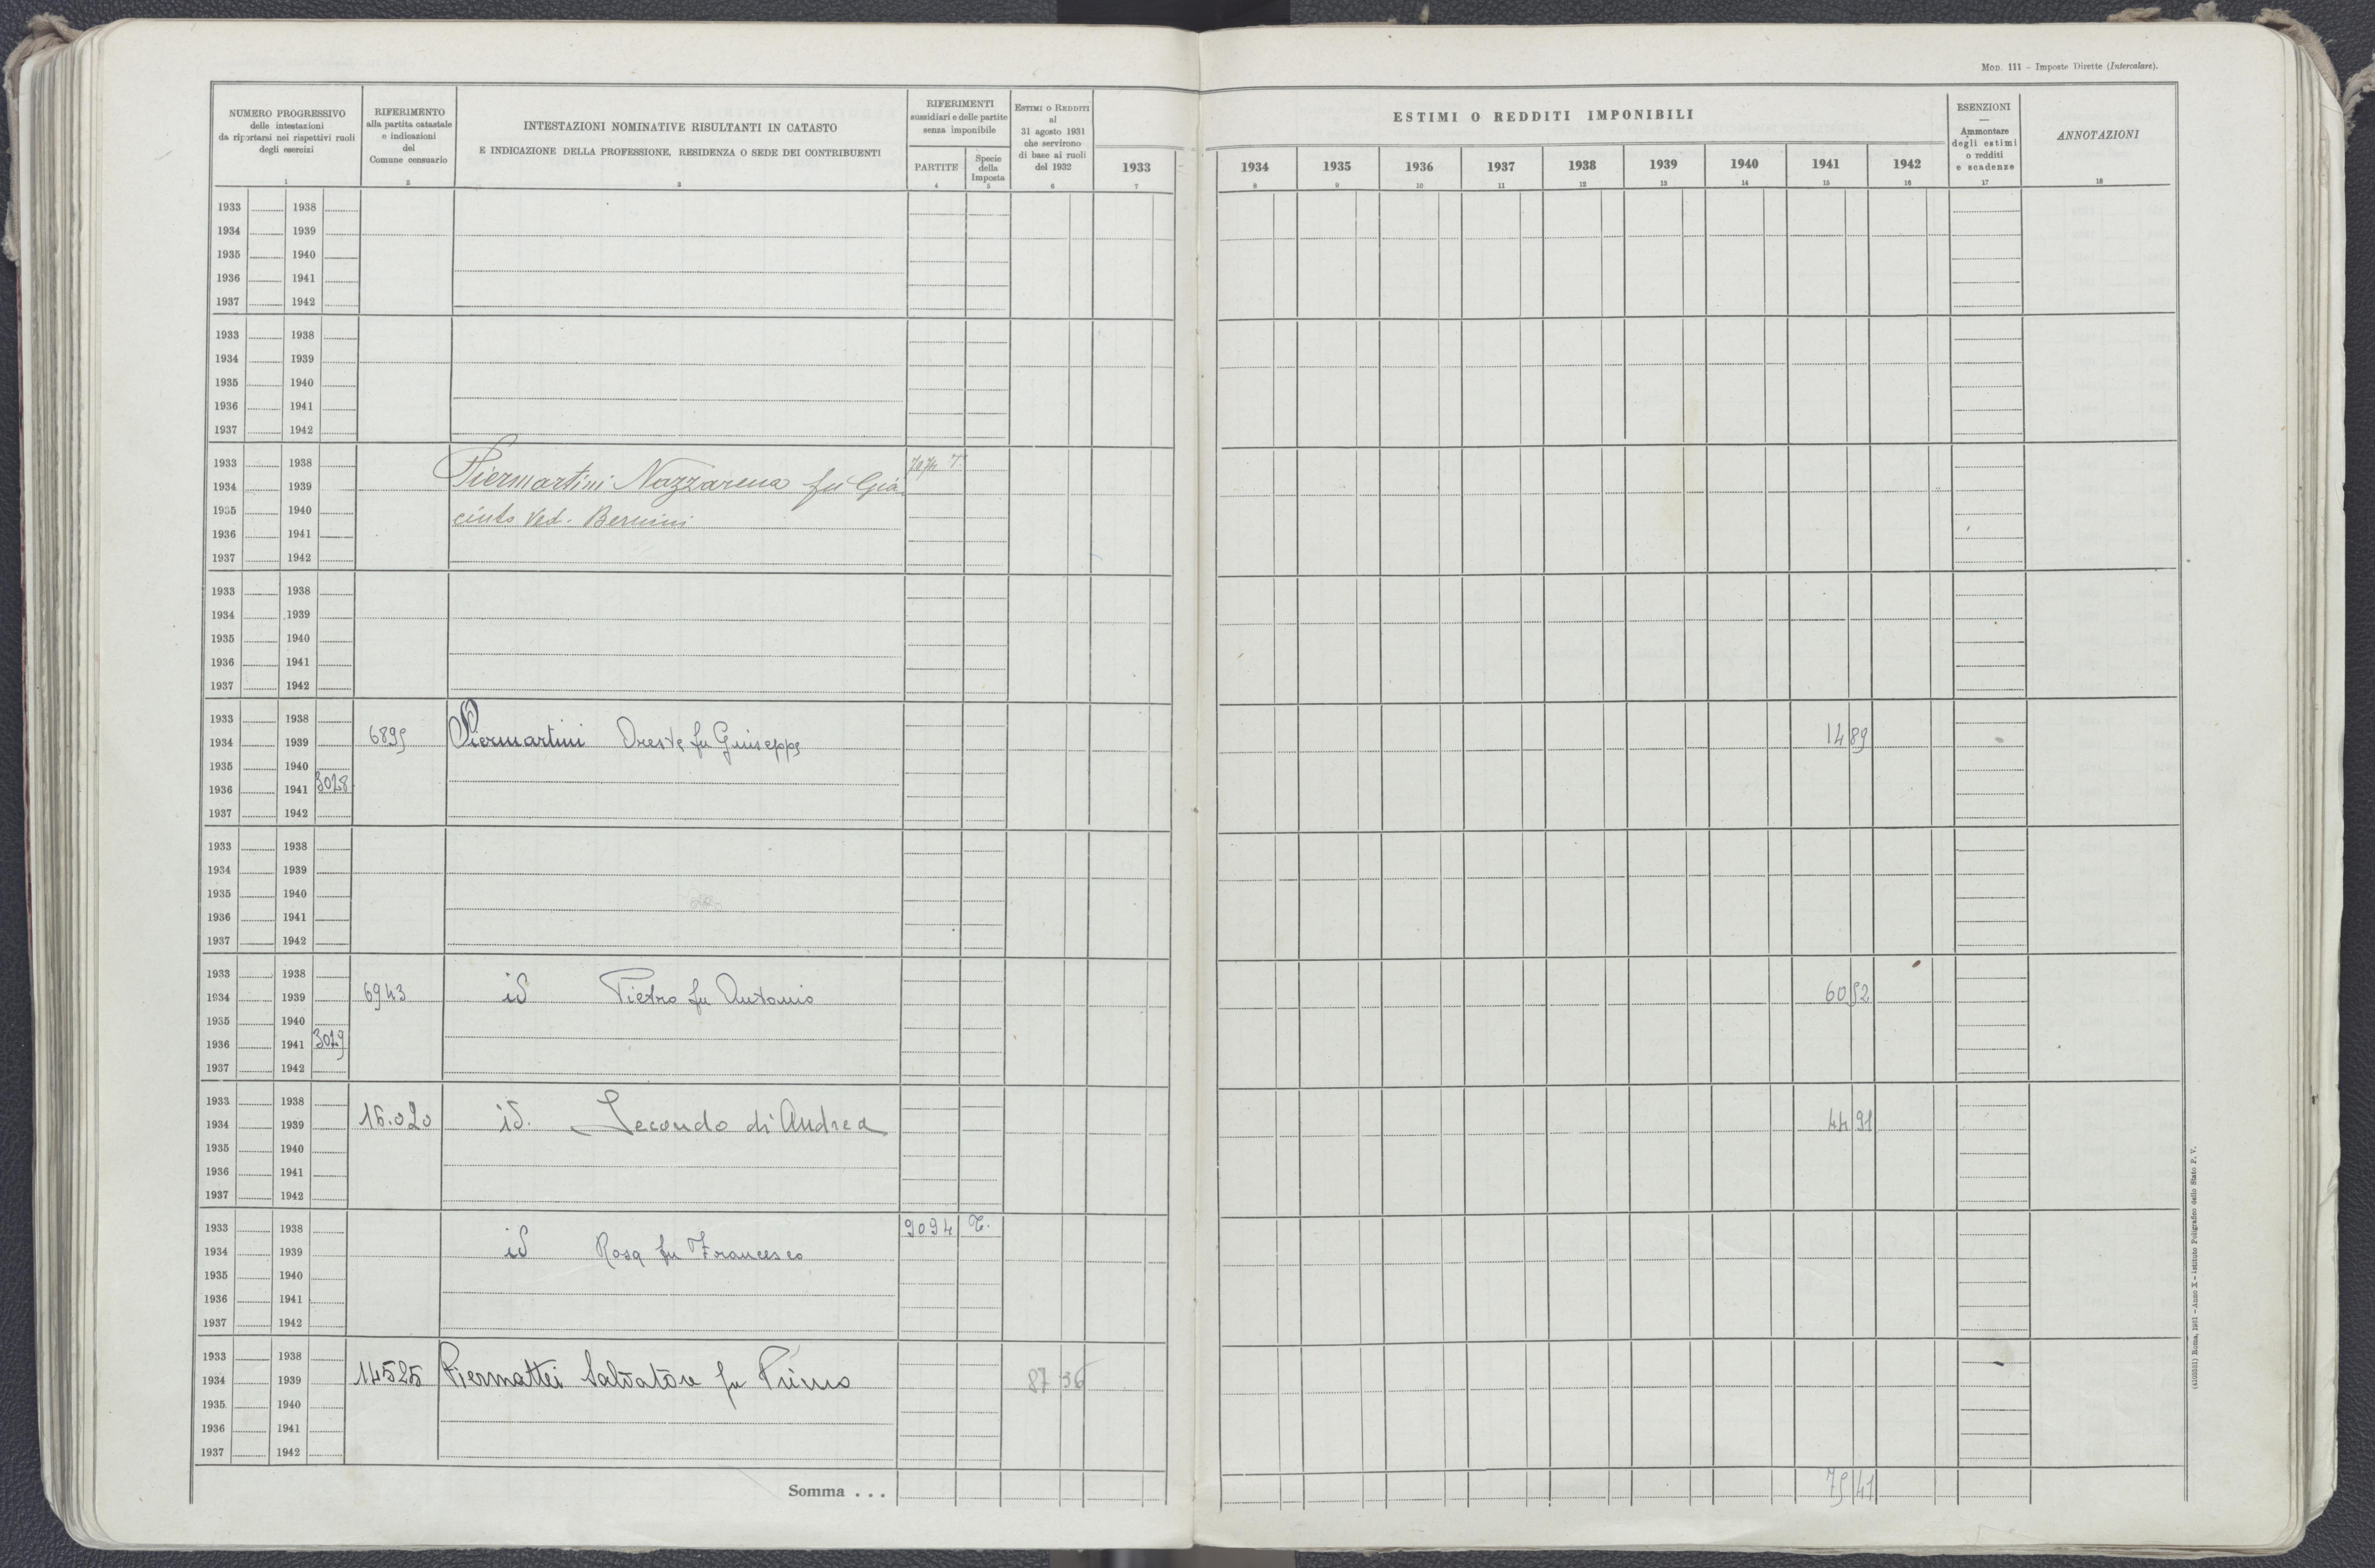 MOD. 111 - Imposte Dirette (Intercalare).
NUMERO PROGRESSIVO
delle intestazioni
da riportarsi nei rispettivi ruoli
degli esercizi
1
RIFERIMENTO
alla partita catastale
e indicazioni
del
Comune censuario
2
INTESTAZIONI NOMINATIVE RISULTANTI IN CATASTO
E INDICAZIONE DELLA PROFESSIONE, RESIDENZA O SEDE DEI CONTRIBUENTI
3
RIFERIMENTI
sussidiari e delle partite
senza imponibile
PARTITE
4
Specie
della
Imposta
5
ESTIMI O REDDITI
al
31 agosto 1931
che servirono
di base ai ruoli
del 1932
6
1933
7
ESTIMI O REDDITI IMPONIBILI
1934 1935 1936 1937 1938 1939 1940 1941 1942
8 9 10 11 12 13 14 15 16
ESENZIONI
—
Ammontare
degli estimi
o redditi
e scadenze
17
ANNOTAZIONI
18
1933 1938
1934 1939
1935 1940
1936 1941
1937 1942
1933 1938
1934 1939
1935 1940
1936 1941
1937 1942
1933 1938
1934 1939 Piermartini Nazzarena fu Gia
1935 1940 cinto Ved. Bernini
1936 1941
1937 1942
1933 1938
1934 1939
1935 1940
1936 1941
1937 1942
1933 1938
1934 1939 6895 Piermartini Oreste fu Giuseppe 14 89
1935 1940
1936 1941 3028
1937 1942
1933 1938
1934 1939
1935 1940
1936 1941
1937 1942
1933 1938
1934 1939 6943 id Pietro fu Antonio 60 52
1935 1940
1936 1941 3029
1937 1942
1933 1938
1934 1939 16.020 id. Secondo di Andrea 44 91
1935 1940
1936 1941
1937 1942
1933 1938 9094 T.
1934 1939 id Rosa fu Francesco
1935 1940
1936 1941
1937 1942
1933 1938
1934 1939 14525 Piermattei Salvatore fu Primo 87 36
1935 1940
1936 1941
1937 1942
Somma . . . 75 41
(4103531) Roma, 1931 - Anno X - Istituto Poligrafico dello Stato P. V.